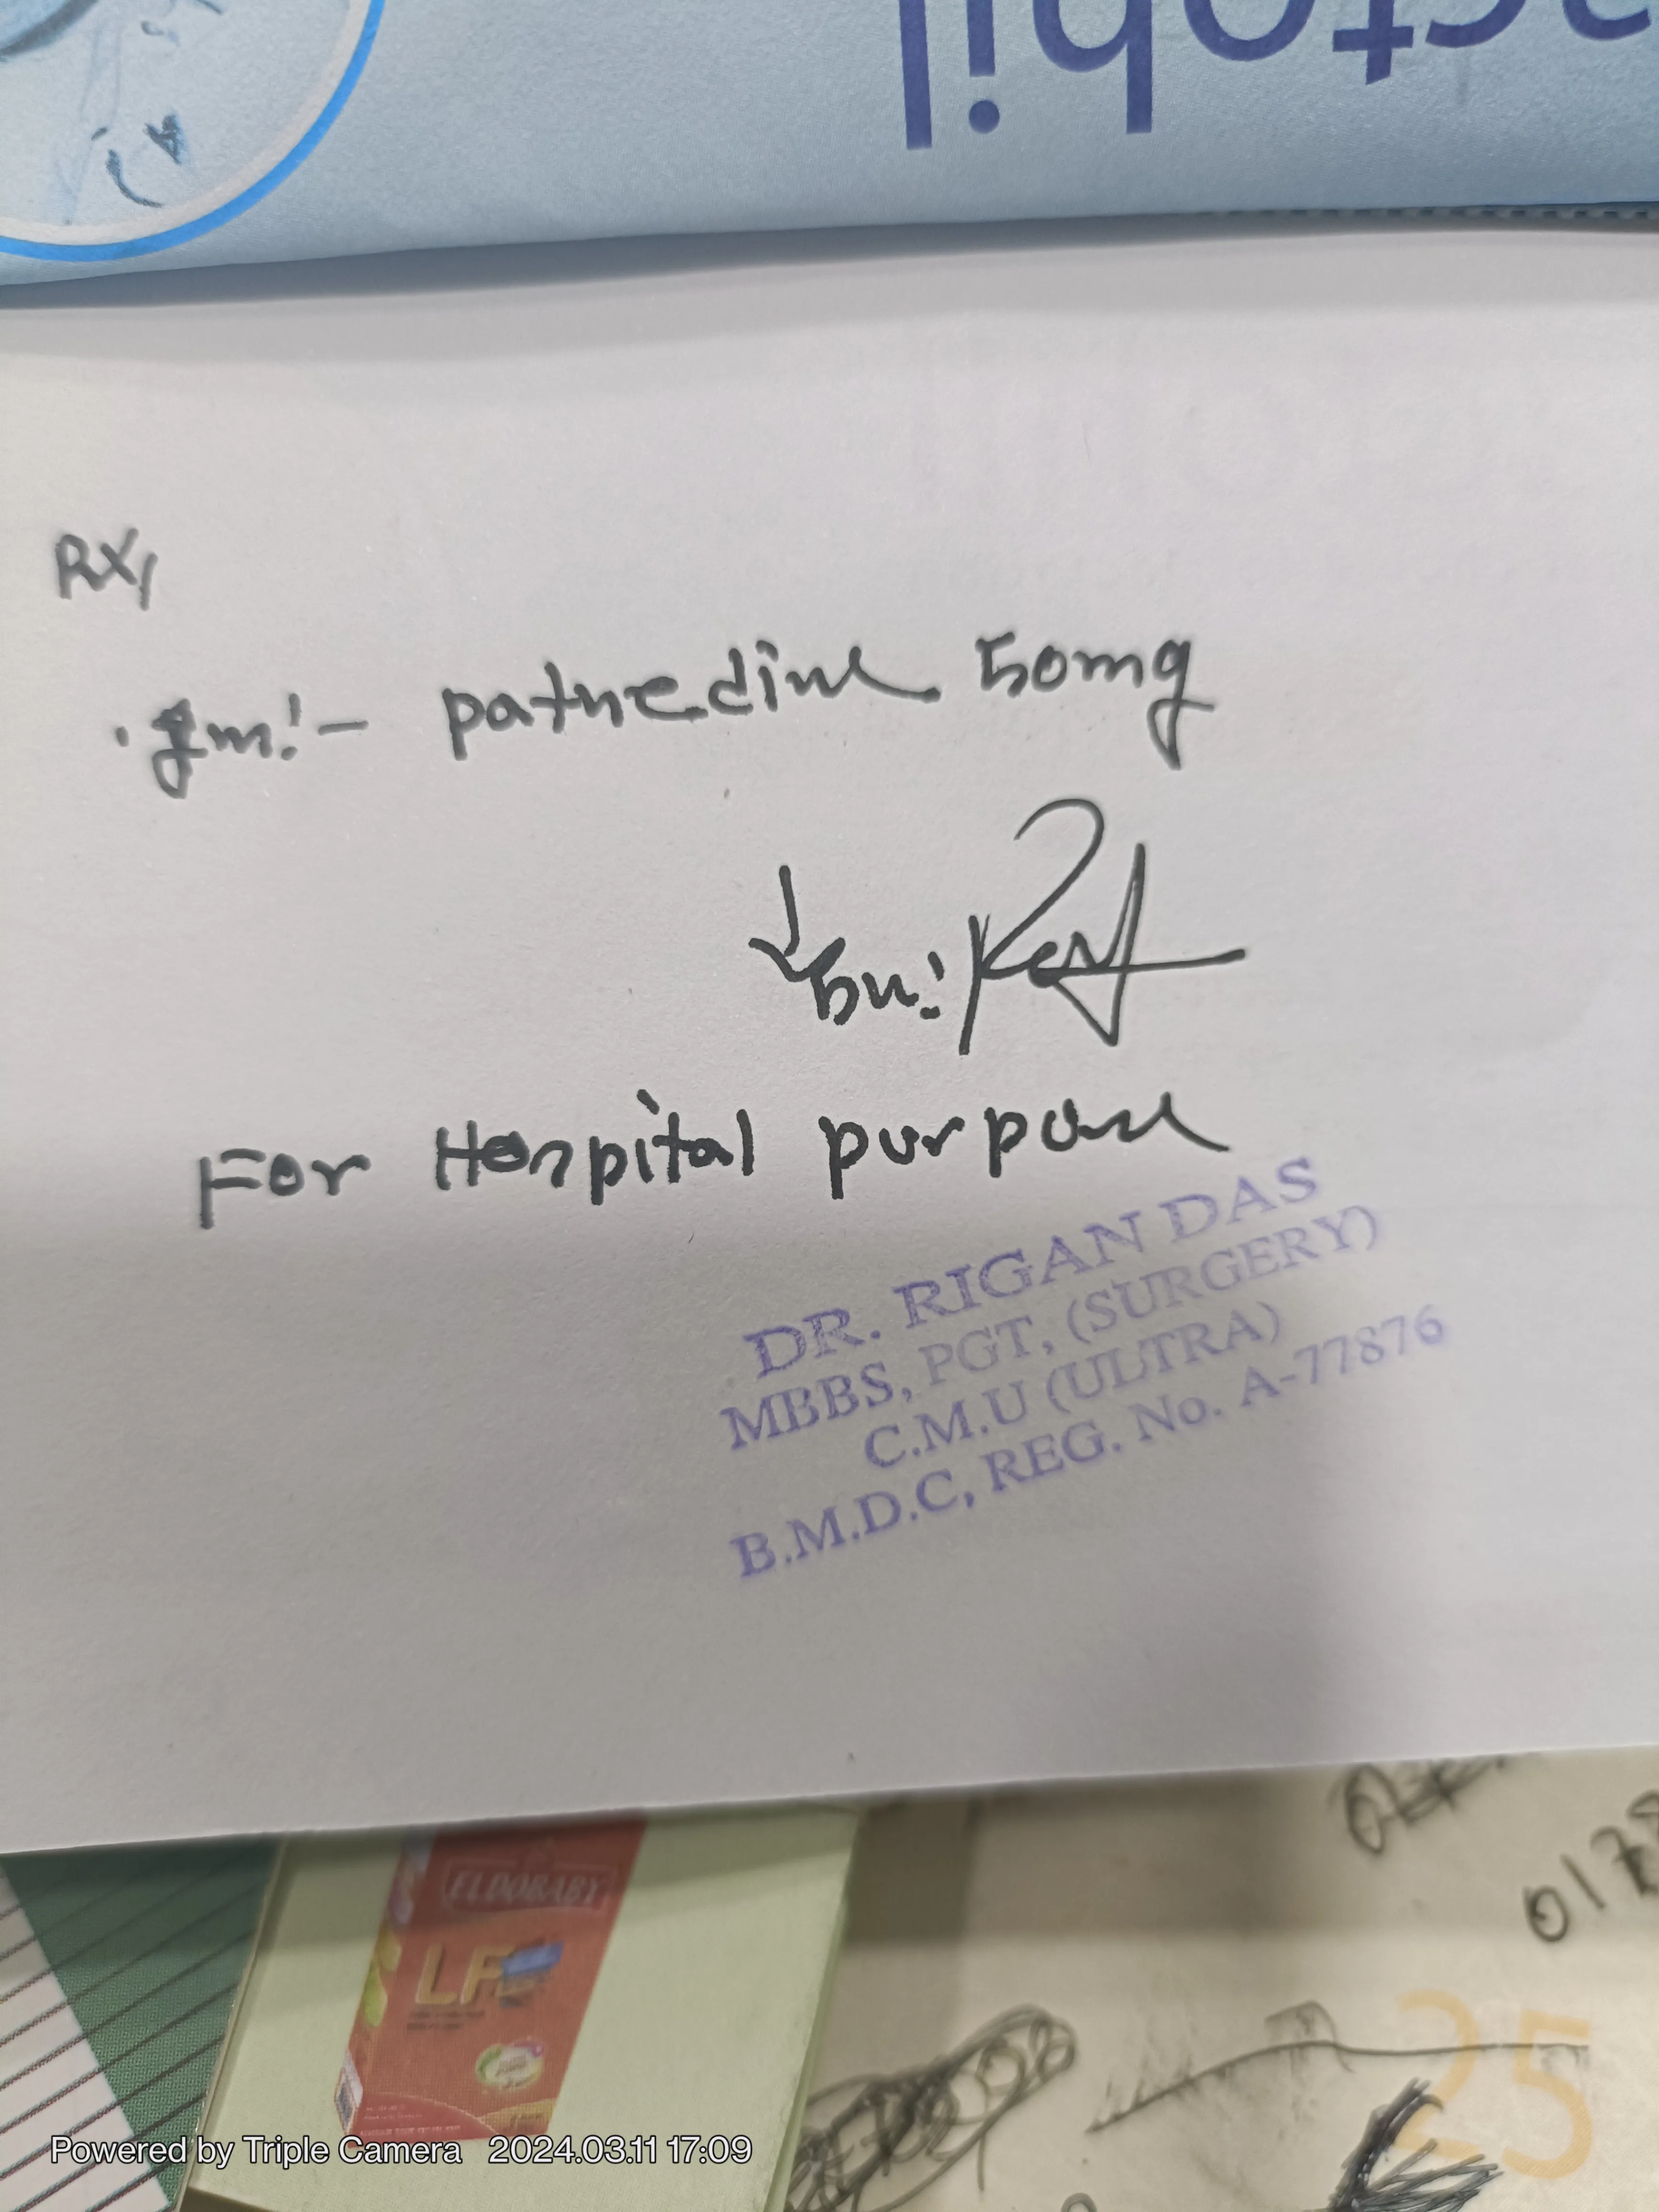 actobil
RX/
. Inj:- pathedine 50mg
For Hospital purpose
DR. RIGAN DAS
MBBS, PGT, (SURGERY)
C.M.U (ULTRA)
B.M.D.C, REG. No. A-77876
0178
ELDOBABY
LF
25
Powered by Triple Camera 2024.03.11 17:09